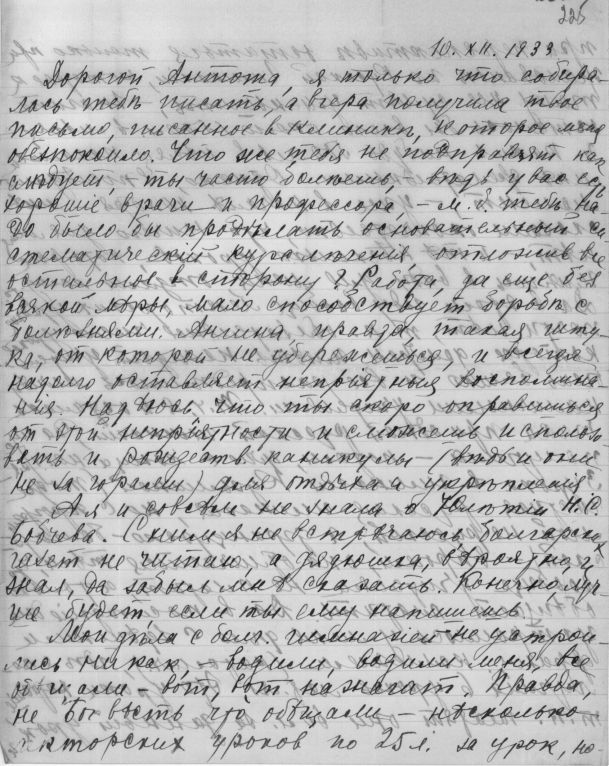 225
10. XII. 1933
Дорогой Антоша, я только что собира-
лась тебѣ писать, а вчера получила твое
письмо, писанное в клиникѣ, которое меня
обезпокоило. Что же тебя не подправят как
слѣдует, ты часто болѣешь, вѣдь у вас есть
хорошіе врачи и профессора, – м. б. тебѣ на-
до было бы продѣлать основательный си-
стематическій курс лѣченія отложив все
остальное в сторону? Работа, да еще без
всякой мѣры, мало способствует борьбѣ с
болѣзнями. Ангина, правда, такая шту-
ка, от которой не убережешься, и всегда
надолго оставляет непріятныя воспомина-
нія. Надѣюсь, что ты скоро оправишься
от этой непріятности и сможешь исполь-
вать и рождеств. каникулы (вѣдь и они
не за горами) для отдыха и укрѣпленія.
А я и совсѣм не знала о Юбилеѣ Н. С.
Бобчева. С ним я не встрѣчаюсь, болгарских
газет не читаю, а дядюшка, вѣроятно, и
знал, да забыл мнѣ сказать. Конечно, луч-
ше будет, если ты ему напишешь.
Мои дѣла с болг. гимназіей не устрои-
лись никак, – водили, водили меня, все
обѣщали – вот, вот назначат. Правда,
не Бог вѣсть что обѣщали – нѣсколько
лекторских уроков по 25 л. за урок, но-